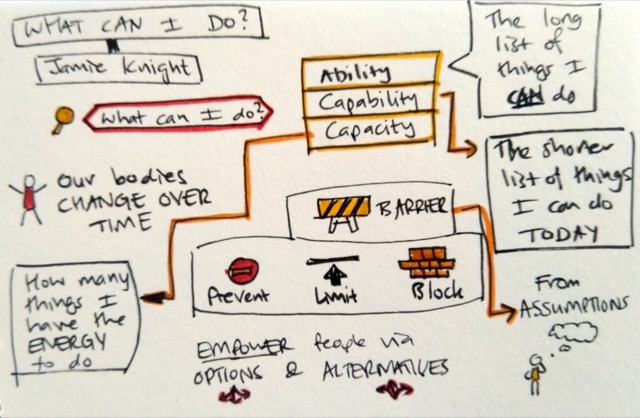 WHAT CAN I DO?
Jamie Knight
What can I do?
Ability
Capability
Capacity
The long
list of
things I
CAN do
The shorter
list of things
I can do
TODAY
Our bodies
CHANGE OVER
TIME
BARRIER
Prevent
Limit
Block
How many
things I
have the
ENERGY
to do
From
ASSUMPTIONS
EMPOWER people via
OPTIONS & ALTERNATIVES